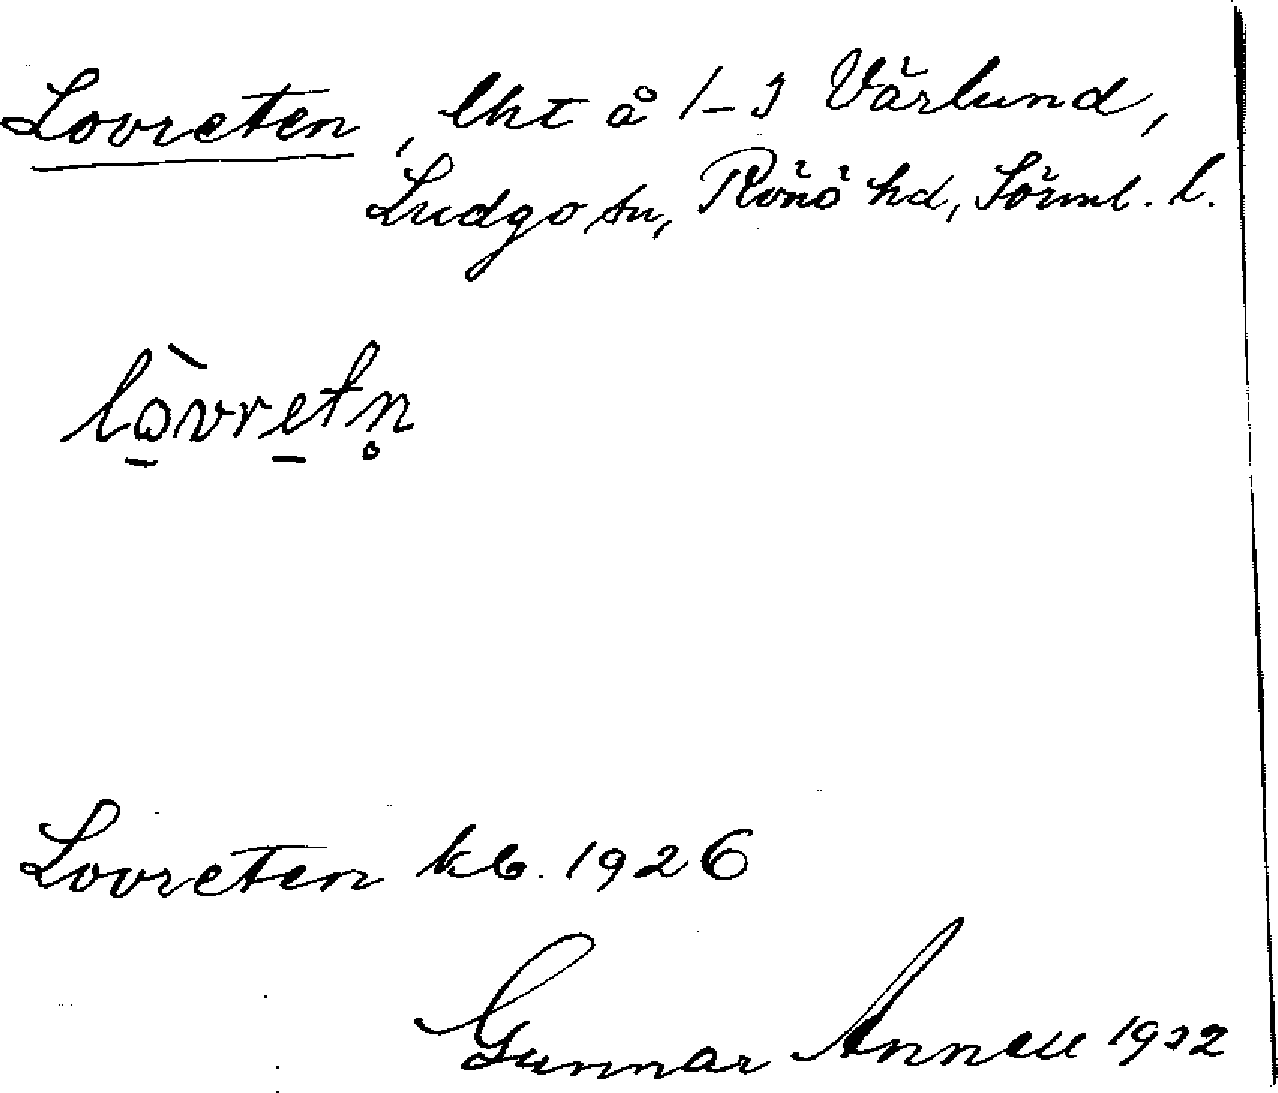 Lovreten, lht å 1-3 Vårlund,
Ludgo sn, Rönö hd, Sörml. l.
lò̱vre̱tn̥
Lovreten kb. 1926
Gunnar Annell 1932